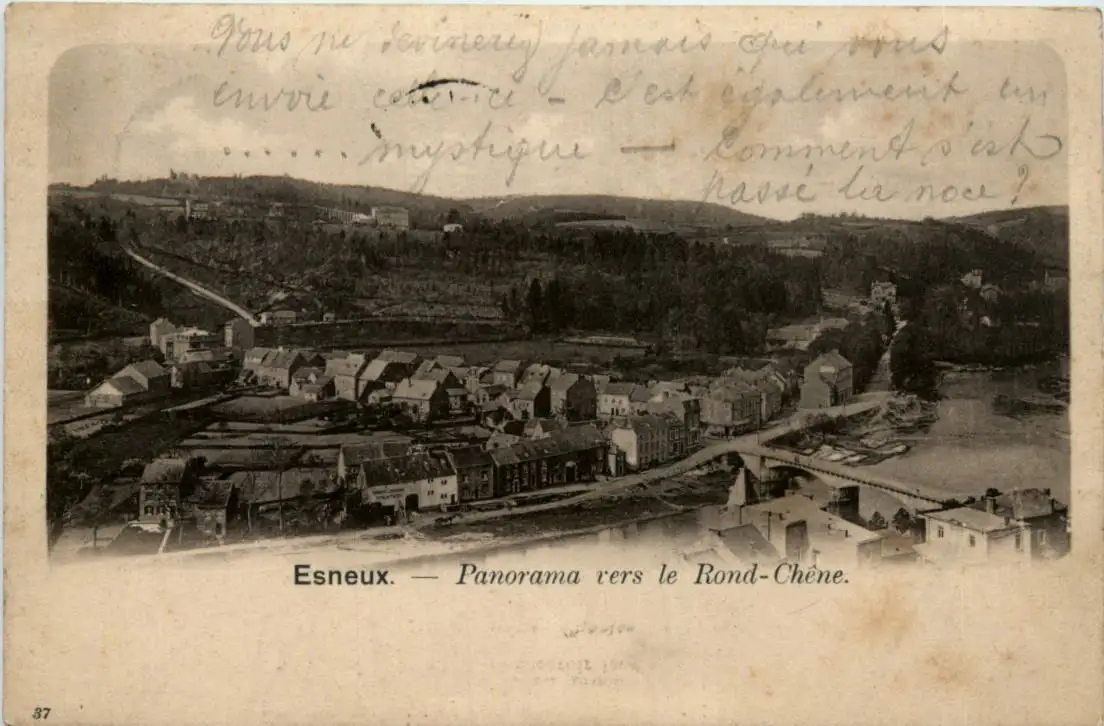 Vous ne devinerez jamais qui vous
envoie celle-ci — c'est également un
...... mystique — Comment s'est
passé la noce ?
Esneux. — Panorama vers le Rond-Chêne.
37